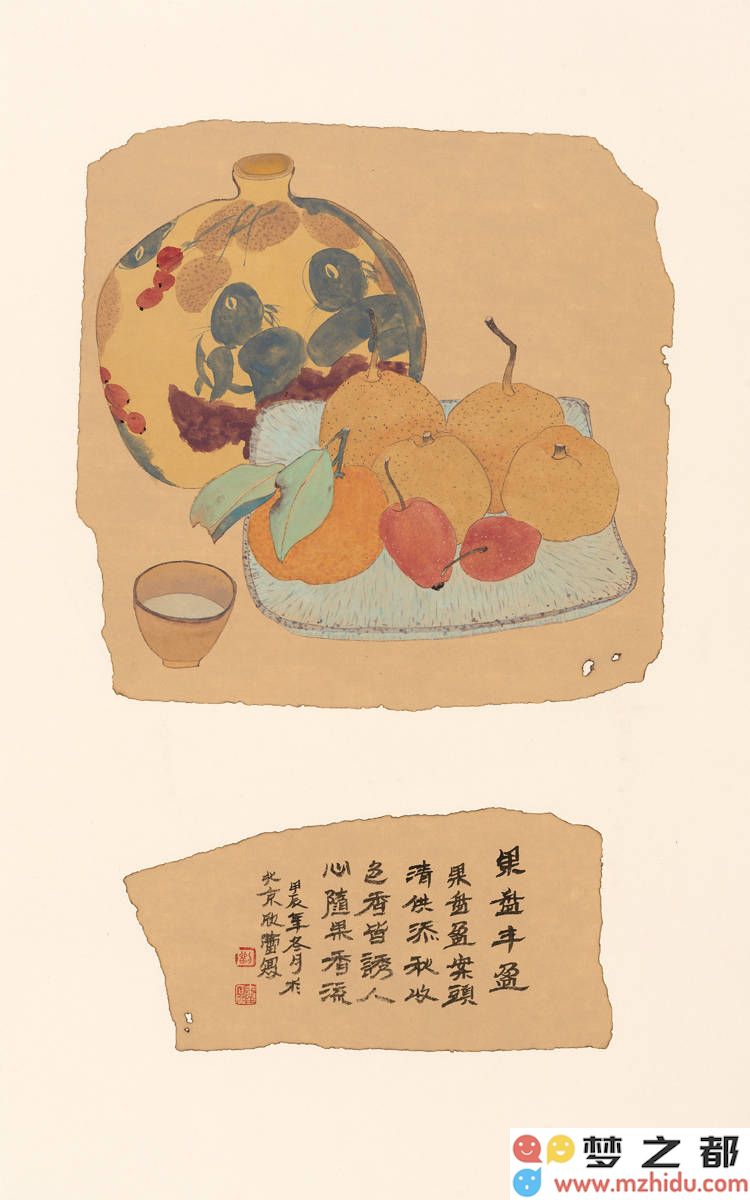 果盘丰盈
果盘盈案頭
清供添秋收
色香皆誘人
心隨果香流
甲辰年冬月於
北京欣蕾
梦之都
www.mzhidu.com